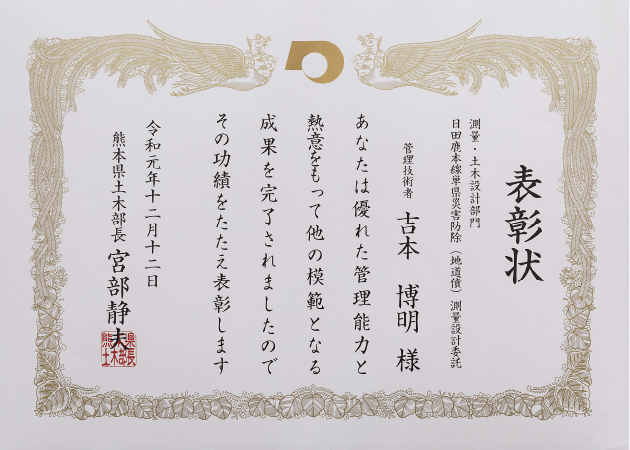 表彰状
測量・土木設計部門
日田鹿本線単県災害防除（地道債）測量設計委託
管理技術者 吉本 博明 様
あなたは優れた管理能力と
熱意をもって他の模範となる
成果を完了されましたので
その功績をたたえ表彰します
令和元年十二月十二日
熊本県土木部長 宮部静夫
熊本県土木部長